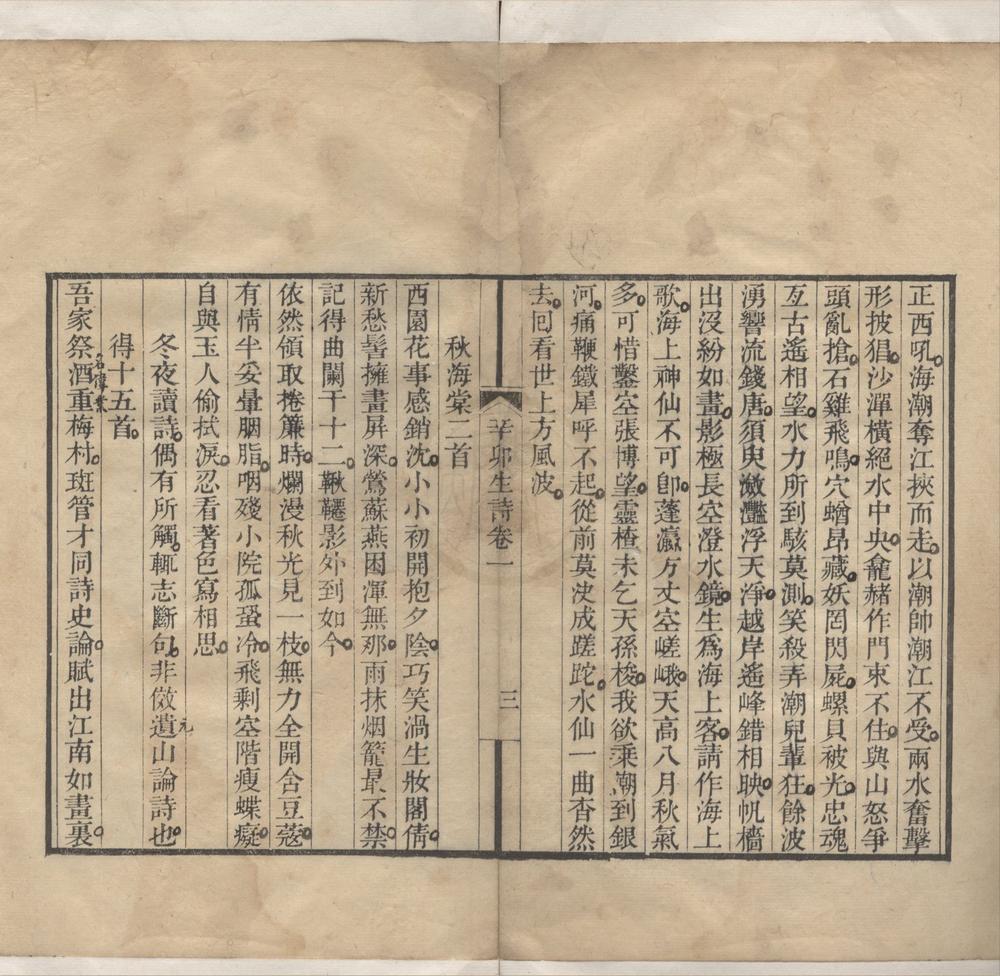 正西吼海潮奪江挾而走以潮帥潮江不受兩水奮擊
形披猖沙渾橫絕水中央龕赭作門束不住與山怒爭
頭亂搶石雞飛鳴穴蝤昂藏妖罔閃屍螺貝被光忠魂
亙古遙相望水力所到駭莫測笑殺弄潮兒輩狂餘波
湧響流錢唐須臾瀲灩浮天淨越岸遙峰錯相映帆檣
出沒紛如畫影極長空澄水鏡生爲海上客請作海上
歌海上神仙不可卽蓬瀛方丈空嵯峨天高八月秋氣
多可惜鑿空張博望靈楂未乞天孫梭我欲乘潮到銀
河痛鞭鐵犀呼不起從前莫決成蹉跎水仙一曲杳然
去回看世上方風波
辛卯生詩卷一
三
秋海棠二首
西園花事感銷沈小小初開抱夕陰巧笑渦生妝閣倩
新愁髻擁畫屏深鶯蘇燕困渾無那雨抹烟籠最不禁
記得曲闌干十二鞦韆影外到如今
依然領取捲簾時爛漫秋光見一枝無力全開含豆蔻
有情半妥暈胭脂咽殘小院孤蛩冷飛剩空階瘦蝶癡
自與玉人偷拭淚忍看著色寫相思
冬夜讀詩偶有所觸輒志斷句非倣遺山論詩也
元
得十五首
吾家祭酒重梅村斑管才同詩史論賦出江南如畫裏
名偉業